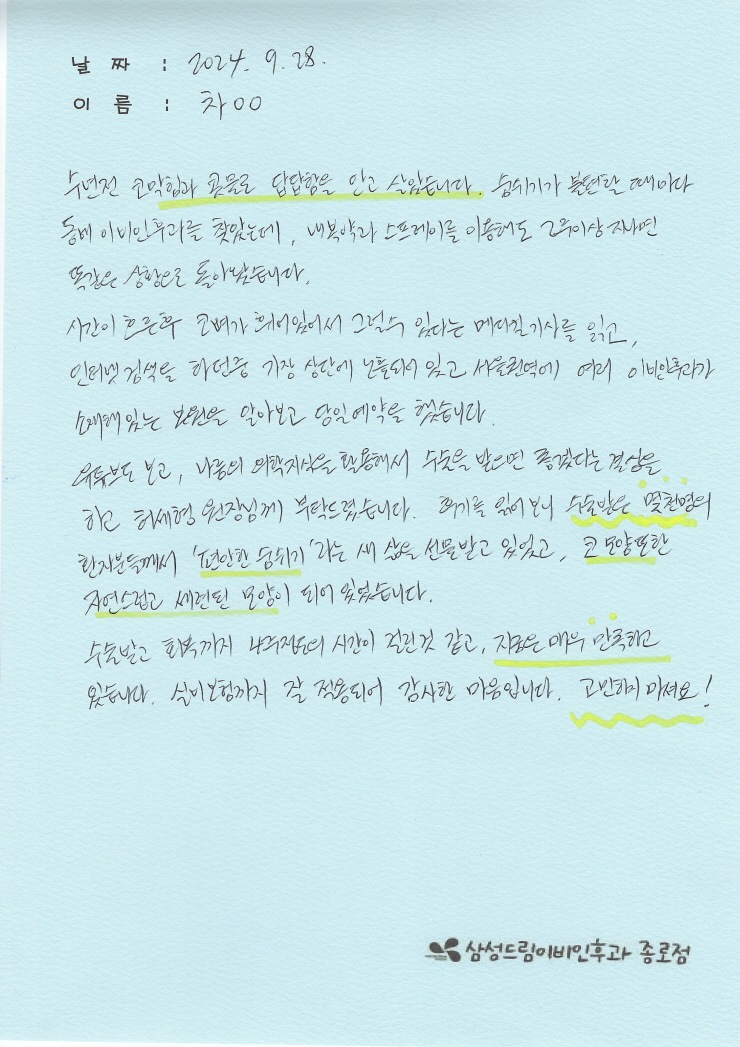 날 짜 : 2024. 9. 28.
이 름 : 차OO
수년전 코막힘과 콧물로 답답함을 안고 살았습니다. 숨쉬기가 불편할 때마다
동네 이비인후과를 찾았는데, 내복약과 스프레이를 이용해도 2주이상 지나면
똑같은 상황으로 돌아왔습니다.
시간이 흐른후 코뼈가 휘어있어서 그럴수 있다는 메디컬기사를 읽고,
인터넷 검색을 하던중 가장 상단에 노출되어 있고 서울권역에 여러 이비인후과가
소재해 있는 병원을 알아보고 당일예약을 했습니다.
유튜브도 보고, 나름의 의학지식을 활용해서 수술을 받으면 좋겠다는 결심을
하고 허세형 원장님께 부탁드렸습니다. 후기를 읽어보니 수술받은 몇천명의
환자분들께서 '편안한 숨쉬기'라는 새 삶을 선물받고 있었고, 코 모양또한
자연스럽고 세련된 모양이 되어 있었습니다.
수술받고 회복까지 4주정도의 시간이 걸린것 같고, 지금은 매우 만족하고
있습니다. 실비보험까지 잘 적용되어 감사한 마음입니다. 고민하지 마세요!
삼성드림이비인후과 종로점